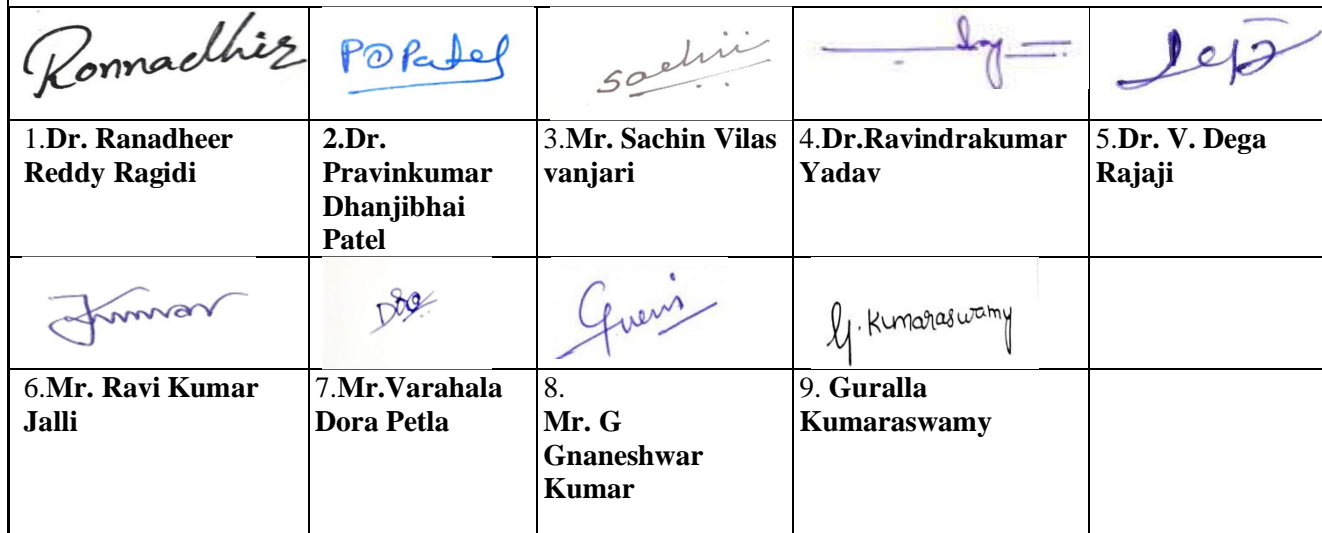 Ronnadhir P@Patel Sachin
1.Dr. Ranadheer Reddy Ragidi
2.Dr. Pravinkumar Dhanjibhai Patel
3.Mr. Sachin Vilas vanjari
4.Dr.Ravindrakumar Yadav
5.Dr. V. Dega Rajaji
Jkumar G. Kumaraswamy
6.Mr. Ravi Kumar Jalli
7.Mr.Varahala Dora Petla
8. Mr. G Gnaneshwar Kumar
9. Guralla Kumaraswamy